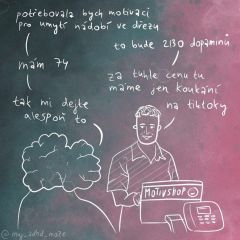 potřebovala bych motivaci
pro umytí nádobí ve dřezu
to bude 2130 dopaminů
mám 74
za tuhle cenu tu
máme jen koukání
na tiktoky
tak mi dejte
alespoň to
MOTIVSHOP
@my_adhd_maze